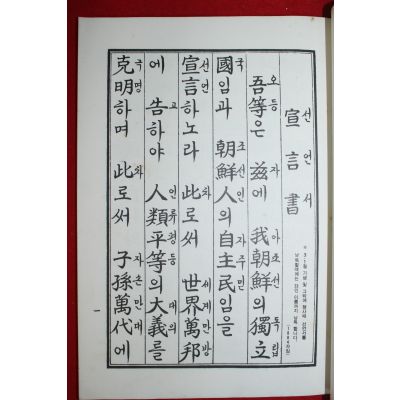 宣言書
선언서
吾等은 玆에 我朝鮮의 獨立
오등 자 아조선 독립
國임과 朝鮮人의 自主民임을
국 조선인 자주민
宣言하노라 此로써 世界萬邦
선언 차 세계만방
에 告하야 人類平等의 大義를
고 인류평등 대의
克明하며 此로써 子孫萬代에
극명 차 자손만대
一